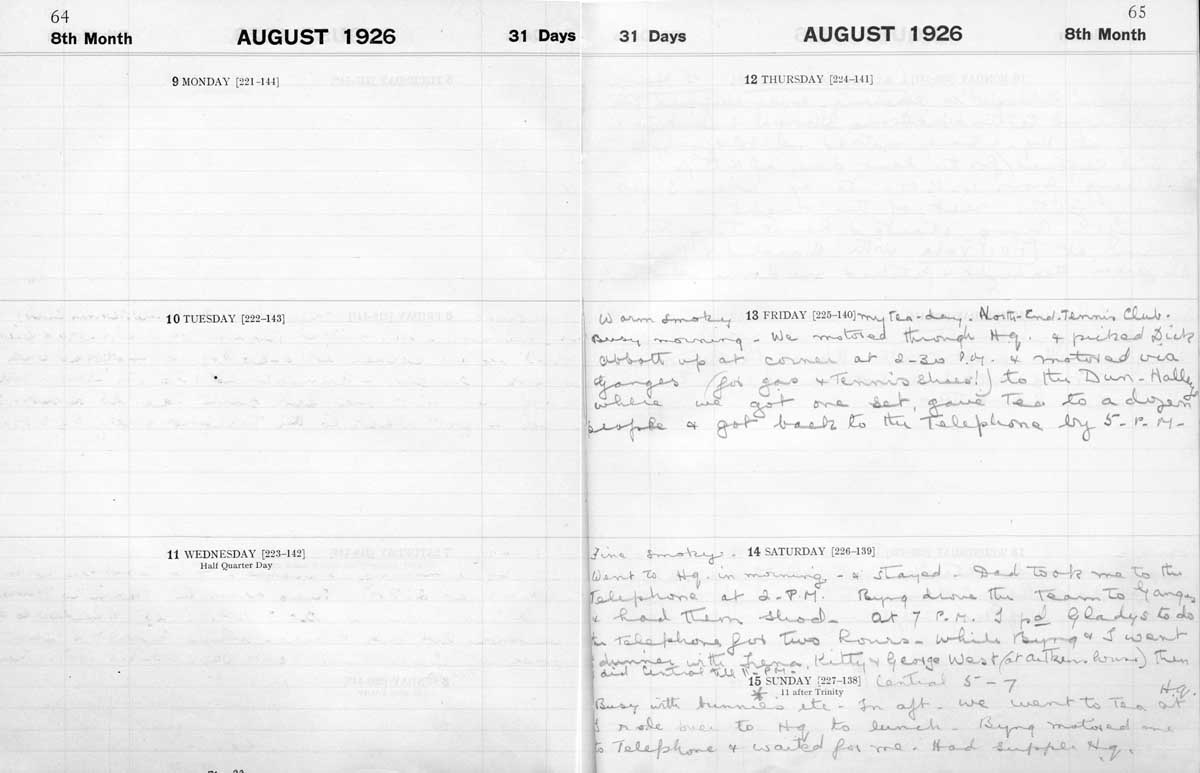 64
8th Month AUGUST 1926 31 Days
9 MONDAY [221-144]
10 TUESDAY [222-143]
11 WEDNESDAY [223-142]
Half Quarter Day
65
31 Days AUGUST 1926 8th Month
12 THURSDAY [224-141]
Warm smoky 13 FRIDAY [225-140] my tea-day. North-End Tennis Club.
Busy morning - We motored through Hq. & picked Dick
Abbott up at corner at 2-30 P.M. & motored via
Ganges (for gas & Tennis shoes!) to the Dun-Halley
where we got one set, gave Tea to a dozen
people & got back to the Telephone by 5-P.M-
Fine Smoky. 14 SATURDAY [226-139]
Went to Hq. in morning - & stayed - Dad took me to the
Telephone at 2-P.M. Byng drove the Team to Ganges
& had them shod - at 7 P.M. I pd Gladys to do
the telephone for two hours - while Byng & I went
dinner with Lena, Kitty & George West (at Aitkens house) then
did Central till 11-P.M.
15 SUNDAY [227-138] Central 5-7
11 after Trinity
Hq.
Busy with bunnies etc - In aft. we went to Tea at
I rode over to Hq to lunch - Byng motored me
to Telephone & waited for me. Had supper Hq.